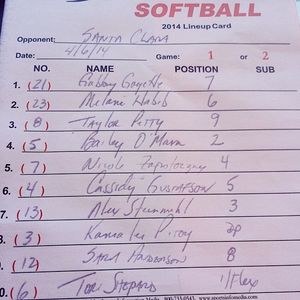 SOFTBALL
2014 Lineup Card
Opponent: SANTA CLARA
Date: 4/6/14 Game: 1 or 2
NO. NAME POSITION SUB
1. (21) Gabby Goyette 7
2. (23) Melanie Habib 6
3. (8) Taylor Petty 9
4. (5) Bailey O'Mara 2
5. (7) Nicole 4
6. (4) Cassidy Gustafson 5
7. (13) Alex 3
8. (3) DP
9. (12) SARA ANDERSON 8
0. (6) TORI SHEPARD 1/Flex